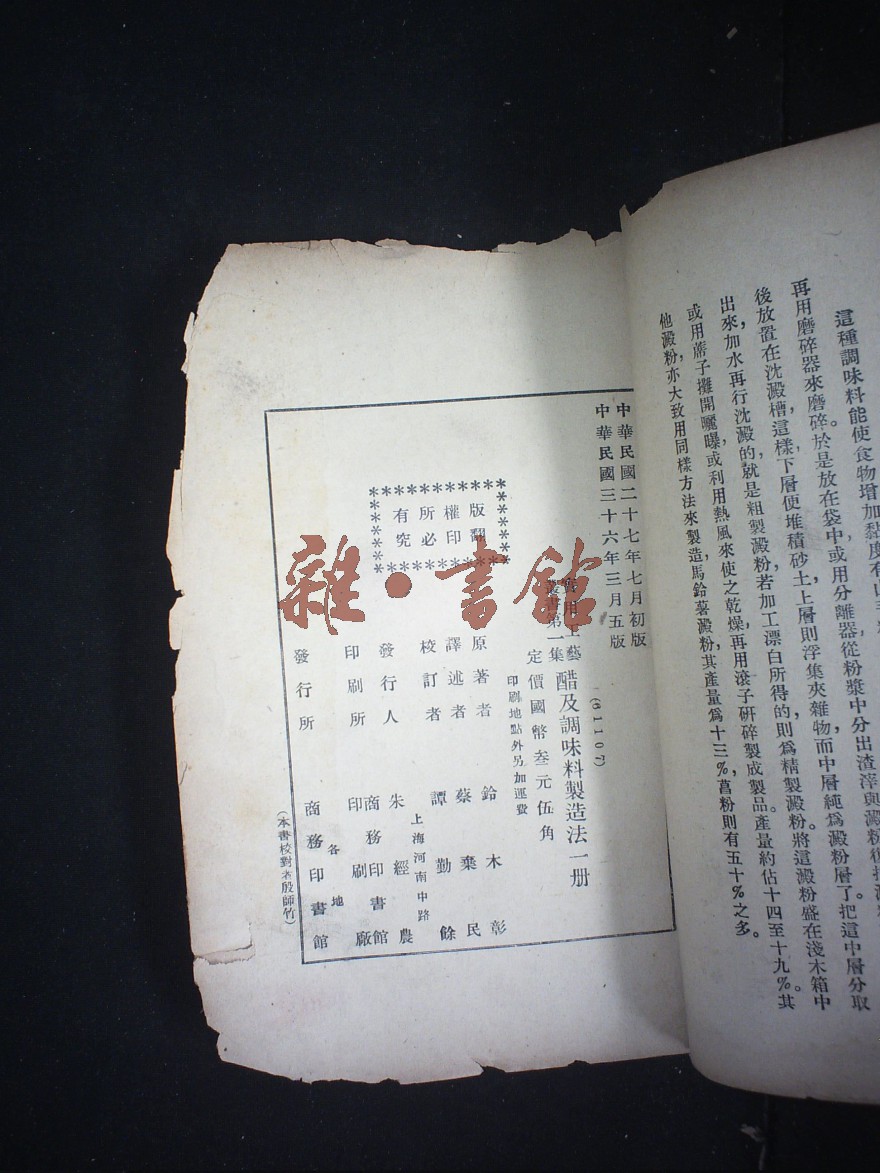 這種調味料能使食物增加黏度有
再用磨碎器來磨碎。於是放在袋中或用分離器從粉漿中分出渣滓與澱粉後
後放置在沈澱槽,這樣,下層便堆積砂土,上層則浮集夾雜物,而中層純爲澱粉層了。把這中層分取
出來,加水再行沈澱的,就是粗製澱粉,若加工漂白所得的,則爲精製澱粉,將這澱粉盛在淺木箱中
或用蓆子攤開曬曝,或利用熱風來使之乾燥,再用滾子研碎製成製品。產量約佔十四至十九%。其
他澱粉,亦大致用同樣方法來製造,馬鈴薯澱粉,其產量爲十三%,葛粉則有五十%之多。
中華民國二十七年七月初版
中華民國三十六年三月五版
(61107)
實用工藝
叢書第一集
醋及調味料製造法一册
定價國幣叁元伍角
印刷地點外另加運費
版權所有
翻印必究
原著者 鈴木彰
譯述者 蔡棄民
校訂者 譚勤餘
上海河南中路
發行人 朱經農
印刷所 商務印書館
印刷廠
各地
發行所 商務印書館
(本書校對者殷師竹)
雜·書館